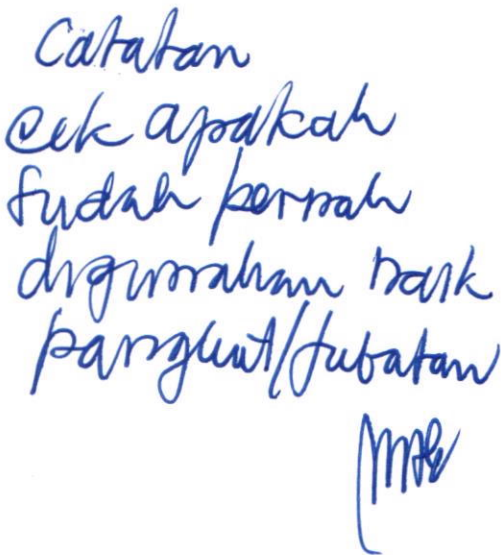 Catatan
Cek apakah
Sudah pernah
digunakan naik
pangkat/Jabatan